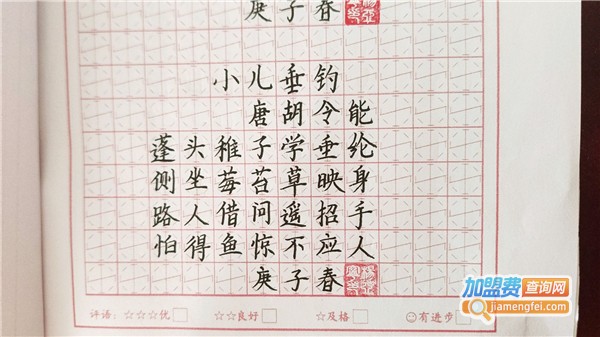 庚子春
小儿垂钓
唐胡令能
蓬头稚子学垂纶
侧坐莓苔草映身
路人借问遥招手
怕得鱼惊不应人
庚子春
评语：☆☆☆优 ☆☆良好 ☆及格 ☺有进步
加盟费查询网
jiamengfei.com